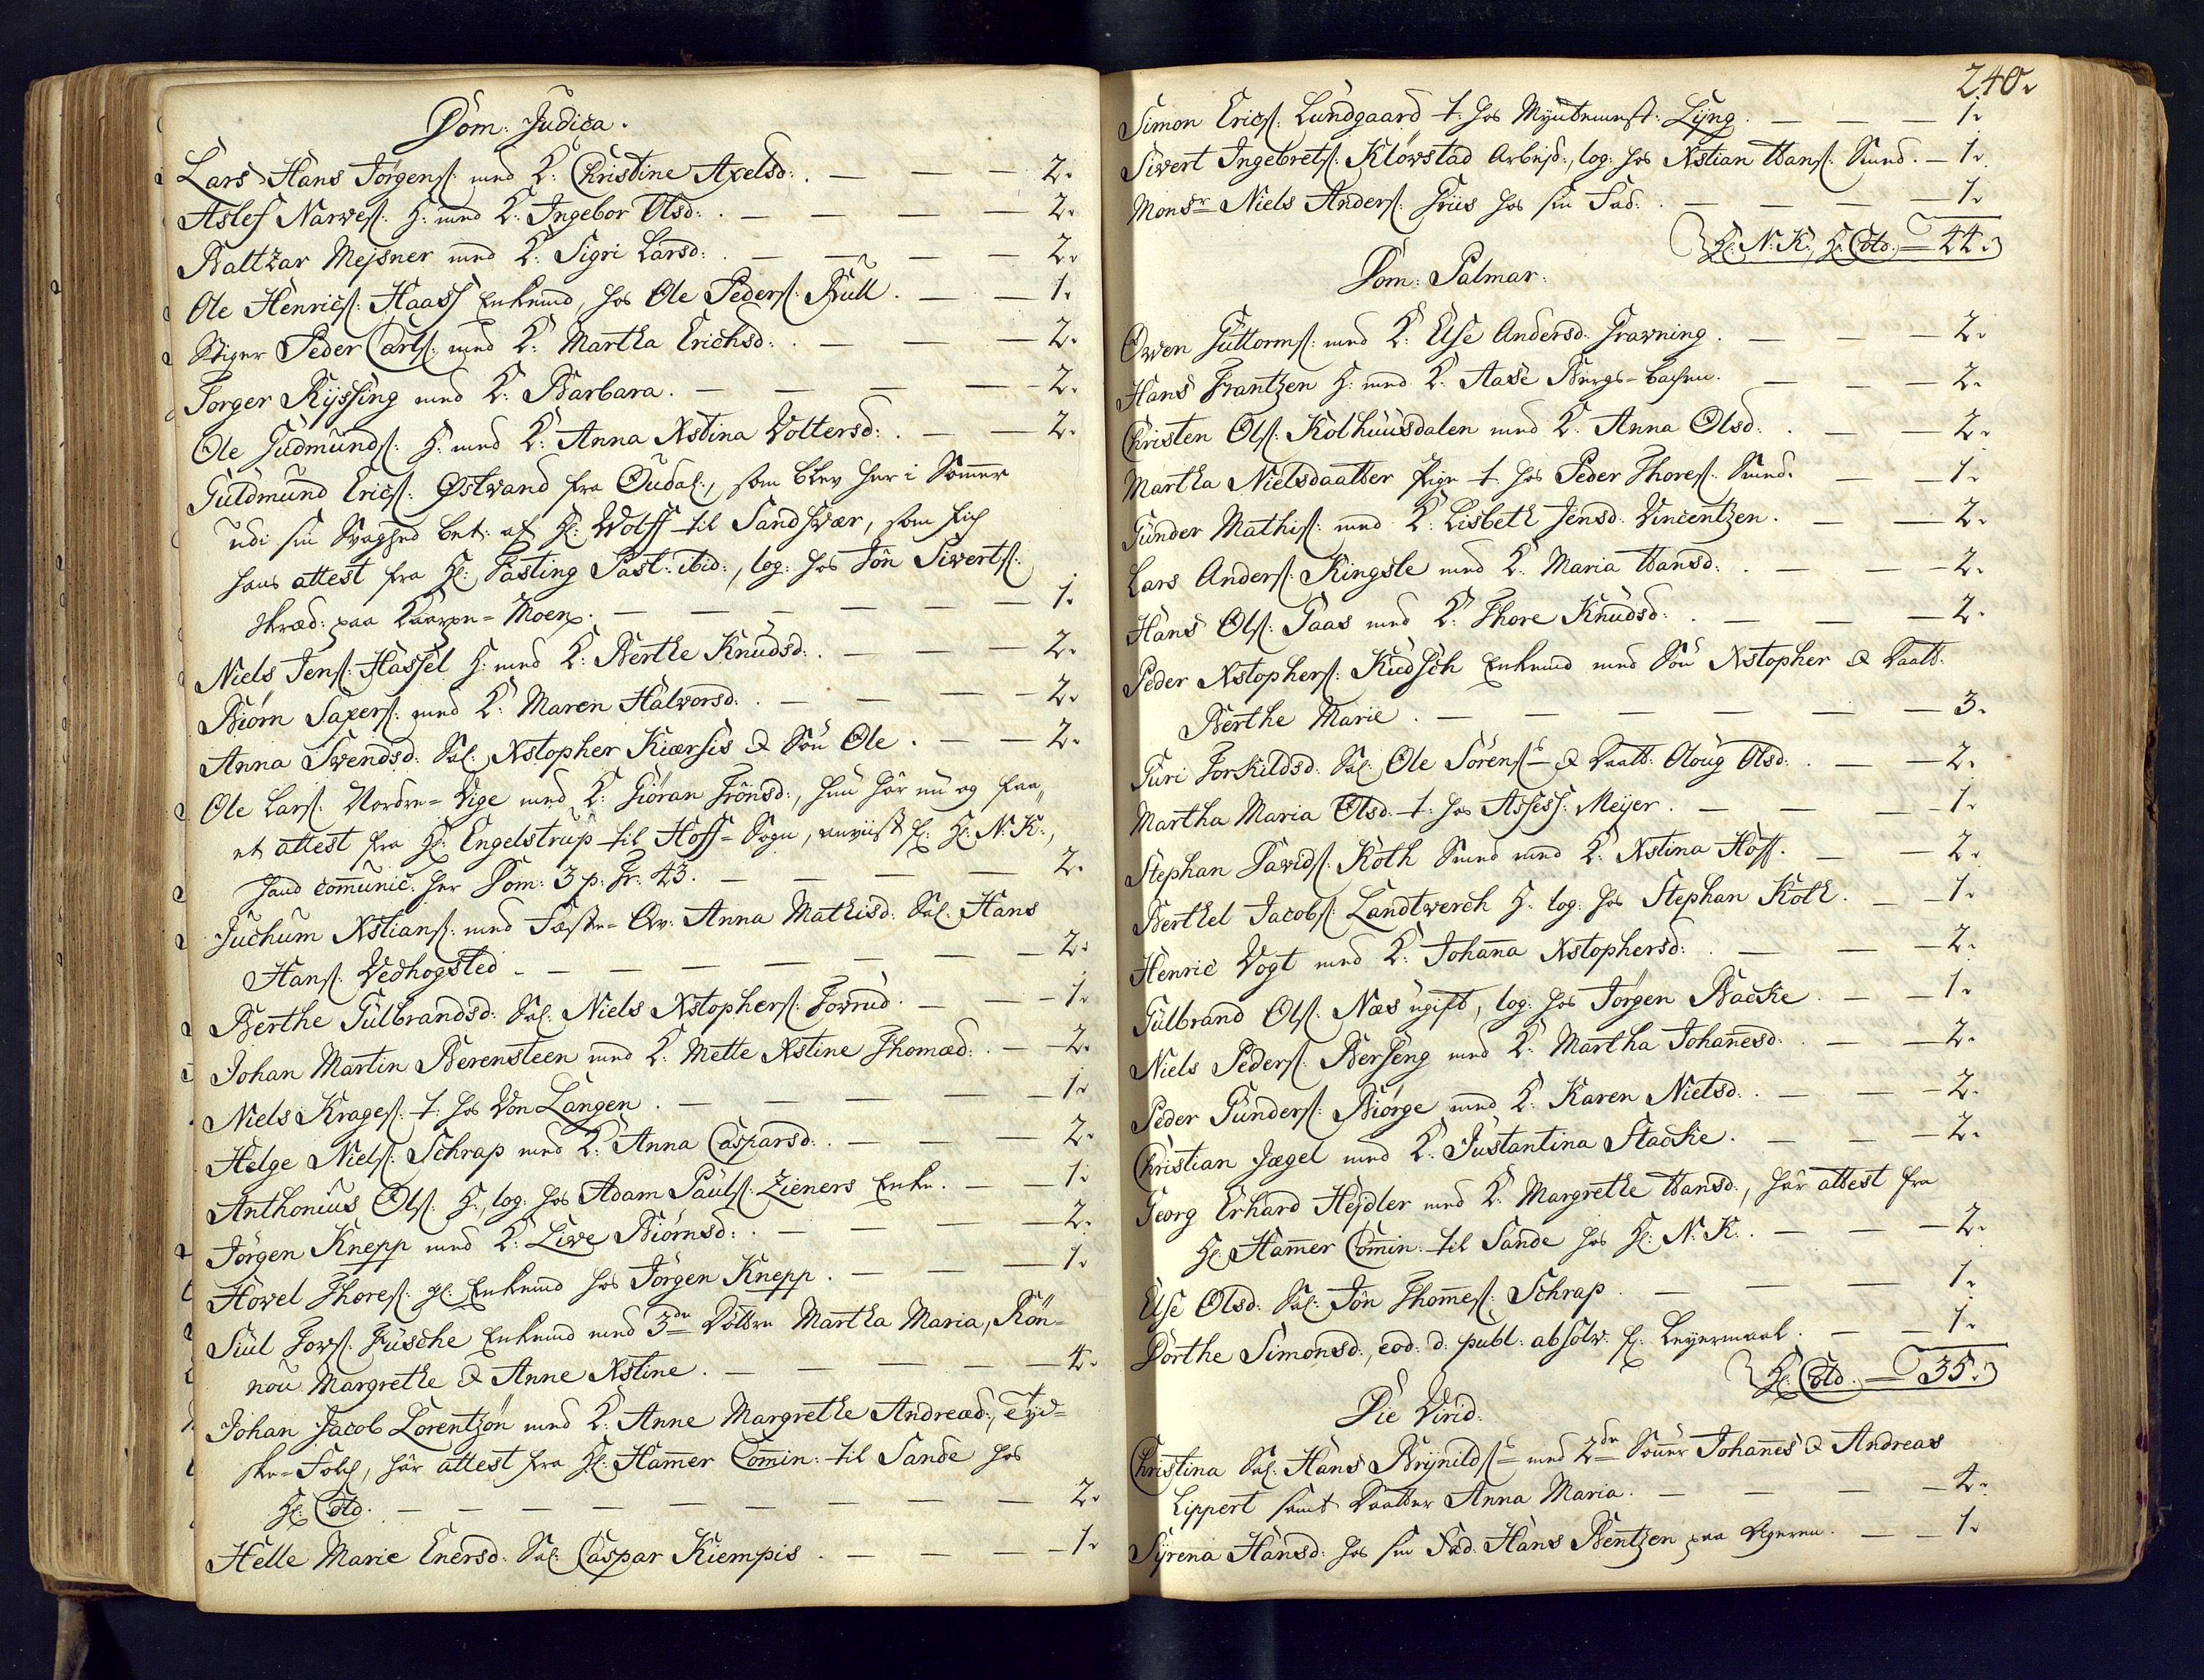 Dom: Judica.
Lars Hans Jørgens: med K: Christine Axelsd: . — — — 2.
Aslef Narves: H: med K: Ingebor Olsd: . — — — — 2.
Baltzar Mejsner med K: Sigri Larsd: . — — — — 2.
Ole Henrics: Haass Enkemd, hos Ole Peders: Krull . — — 1.
Stiger Peder Carls: med K: Martha Erichsd: . — — — 2.
Torger Ryssing med K: Barbara . — — — — 2.
Ole Gudmunds: H: med K: Anna Xstina Voltersd: . — — 2.
Guldmund Erics: Østvand fra Oudal:, som blev her i Sommer
udi sin Svaghed bet: af Hr: Wolff til Sandsvær, som fich
hans attest fra Hr: Fasting Past: ibid:, log: hos Jøn Siverts:
skræd: paa Moen. — — — — — — 1.
Niels Jens: Hassel H: med K: Berthe Knudsd: . — — — 2.
Biørn Saxers: med K: Maren Halvorsd: . — — — 2.
Anna Svendsd: Sal: Xstopher Kiærsis & Søn Ole . — — 2.
Ole Lars: Nordre-Vige med K: Giøran Trönsd:, hun har nu og faa
et attest fra Hr: Engelstrup til Hoff-Sogn, anviist f: Hr: N: K:,
hand com̄unic: her Dom: 3 p: Tr: 43. — — — — 2.
Juchum Xstians: med Fæste-Qv: Anna Mathisd: Sal: Hans
Hans: Vedhogsted — — — — — — — 2.
Berthe Gulbrandsd: Sal: Niels Xstophers: Fovrud . — — 1.
Johan Martin Berensteen med K: Mette Xstine Thomæd: . — 2.
Niels Krages: t: hos Von Langen . — — — — — 1.
Helge Niels: Schrap med K: Anna Caspersd: . — — — 2.
Anthonius Ols: H:, log: hos Adam Pauls: Zieners Enke . — — 1.
Jørgen Knepp med K: Live Biørnsd: . — — — — 2.
Hovel Thores: gl: Enkemd hos Jørgen Knepp . — — — 1.
Siul Tovs: Fusche Enkemd med 3de Döttre Martha Maria, Rön-
nou Margrethe & Anne Xstine . — — — — 4.
Johan Jacob Lorentzøn med K: Anne Margrethe Andreæd:, Tyd-
ske-Folch, har attest fra Hr: Ham̄er Com̄in: til Sande hos
Hr: Cold. — — — — — — — — 2.
Helle Marie Enersd: Sal: Caspar Kiempis . — — — — 1.
240.
Simon Erics: Lundgaard t: hos Myntemest: Lyng . — — — 1.
Sivert Ingebrets: Klöwstad Arbeid:, log: hos Xstian Hans: Smed . — 1.
Monsr Niels Anders: Friis hos sin Fad: . — — — — 1.
Hr: N: K:, Hr: Cold. = 44.
Dom: Palmar:
Owen Guttorms: med K: Else Andersd: Gravning . — — — 2.
Hans Frantzen H: med K: Aase Bergs-bachen . — — — 2.
Christen Ols: Kolhuusdalen med K: Anna Olsd: . — — 2.
Martha Nielsdaatter Pige t: hos Peder Thores: Smed . — — 1.
Gunder Mathis: med K: Lisbeth Jensd: Vincentzen . — — 2.
Lars Anders: Ringsle med K: Maria Hansd: . — — — 2.
Hans Ols: Gaas med K: Thore Knudsd: . — — — 2.
Peder Xstophers: Kudsch Enkemd med Søn Xstopher & Daatt:
Berthe Marie . — — — — — — — 3.
Guri Torkildsd: Sal: Ole Sörens: & Daatt: Aloug Olsd: . — — 2.
Martha Maria Olsd: t: hos Assess: Meyer . — — — — 1.
Stephan Davids: Koth Smed med K: Xstina Hoff . — — 2.
Berthel Jacobs: Landtwerch H: log: hos Stephan Koth . — — 1.
Henric Vogt med K: Johan̄a Xstophersd: . — — — 2.
Gulbrand Ols: Næs ugift, log: hos Jørgen Backe . — — 1.
Niels Peders: Berseng med K: Martha Johan̄esd: . — — 2.
Peder Gunders: Biørge med K: Karen Nielsd: . — — — 2.
Christian Jægel med K: Justantina Stacke . — — — 2.
Georg Erhard Heydler med K: Margrethe Hansd:, har attest fra
Hr: Ham̄er Com̄in: til Sande hos Hr: N: K: . — — — 2.
Else Olsd: Sal: Jøn Thom̄es: Schrap . — — — — 1.
Dorthe Simonsd:, eod: d: publ: absolv: f: Leyermaal . — — 1.
Hr: Cold. = 35.
Die Virid:
Christina Sal: Hans Brynilds: med 2de Sönner Johan̄es & Andreas
Lippert samt Daatter Anna Maria . — — — — 4.
Syrena Hansd: hos sin Fad: Hans Bentzen paa . — — 1.